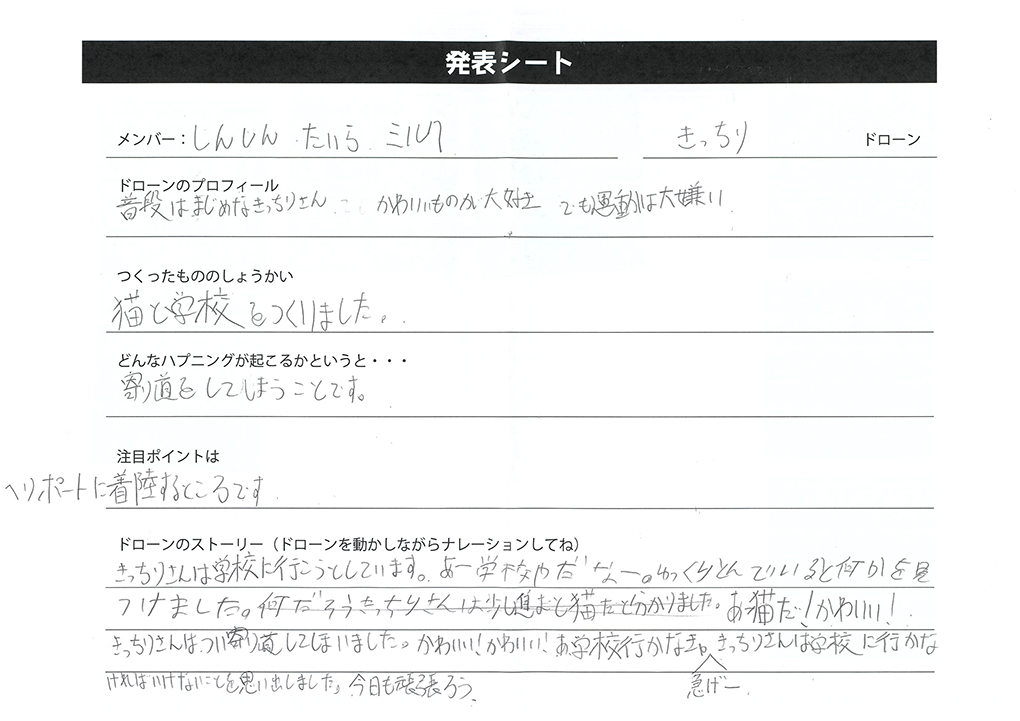 発表シート
メンバー：しんしん たいら ミルク きっちり ドローン
ドローンのプロフィール
普段はまじめなきっちりさん かわいいものが大好き でも運動は大嫌い
つくったもののしょうかい
猫と学校をつくりました。
どんなハプニングが起こるかというと・・・
寄り道をしてしまうことです。
注目ポイントは
ヘリポートに着陸するところです
ドローンのストーリー（ドローンを動かしながらナレーションしてね）
きっちりさんは学校に行こうとしています。あー学校やだなー。ゆっくりとんでいると何かを見
つけました。何だろうきっちりさんは少し進むと猫だと分かりました。あ猫だ！かわいい！
きっちりさんは、つい寄り道してしまいました。かわいい！かわいい！あ学校行かなき。きっちりさんは学校に行かな
ければいけないことを思い出しました。今日も頑張ろう。 急げー